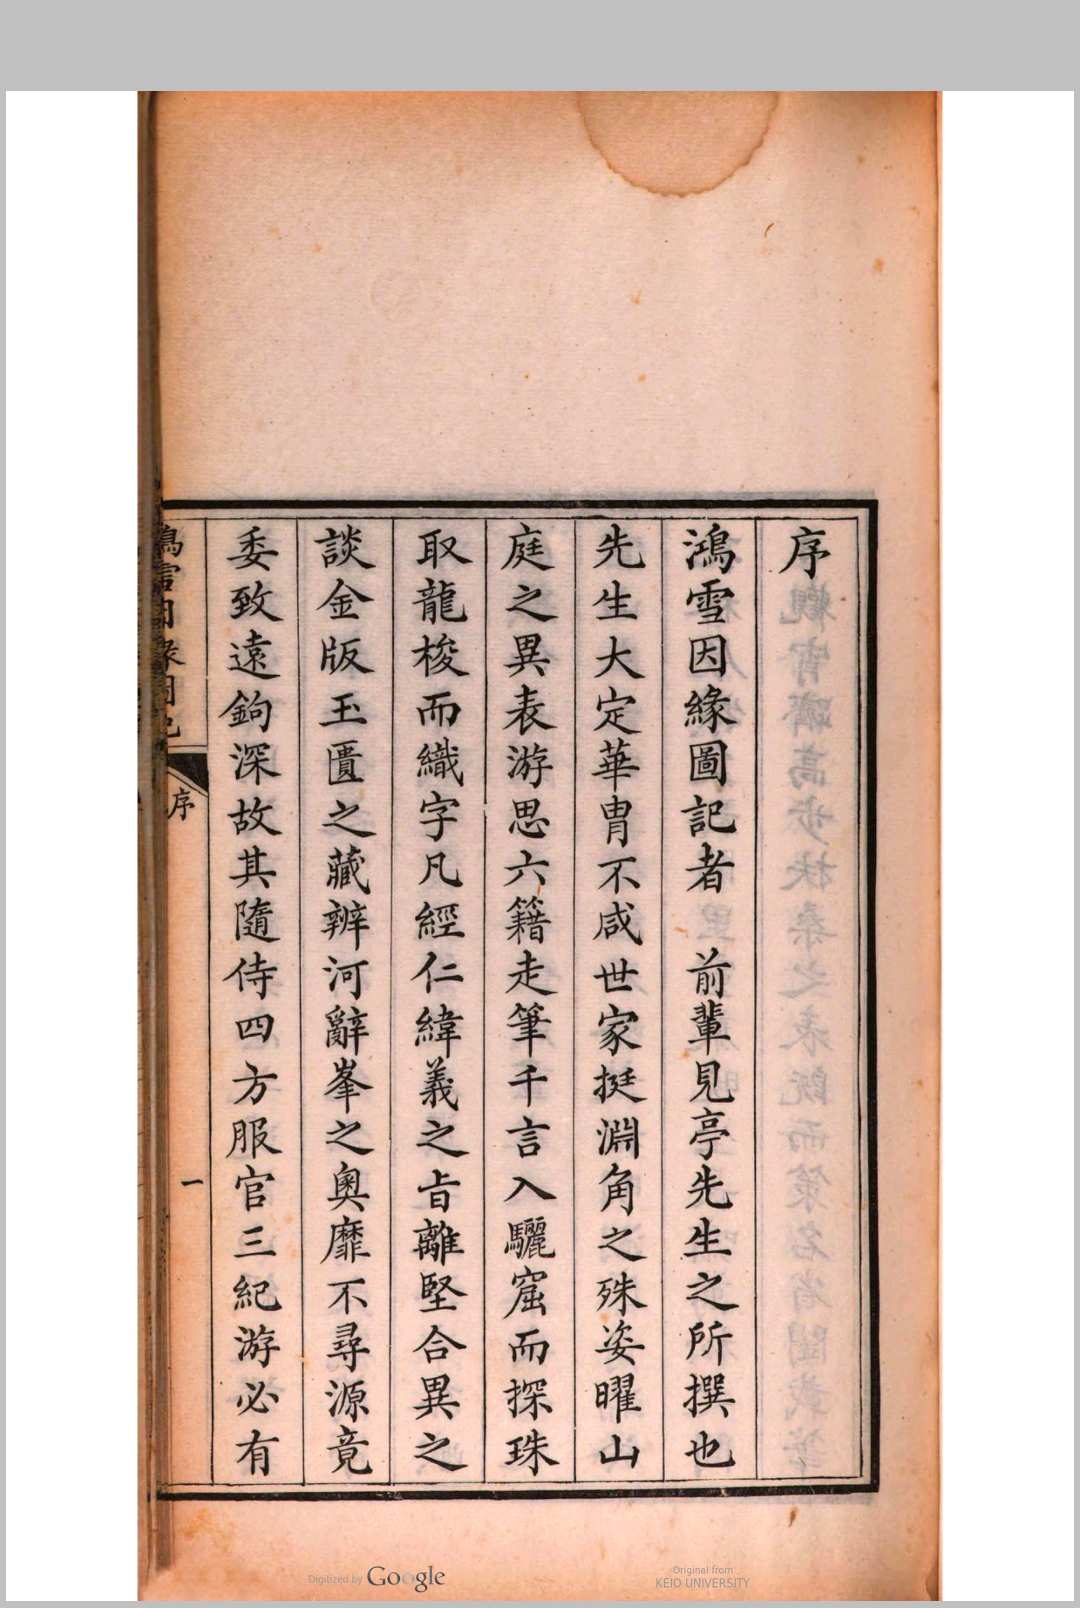 序
鴻雪因緣圖記者　前輩見亭先生之所撰也
先生大定華胄不咸世家挺淵角之殊姿曜山
庭之異表游思六籍走筆千言入驪窟而探珠
取龍梭而織字凡經仁緯義之旨離堅合異之
談金版玉匱之藏辨河辭峯之奧靡不尋源竟
委致遠鉤深故其隨侍四方服官三紀游必有
鴻雪因緣圖記
序
一
Digitized by Google
Original from
KEIO UNIVERSITY